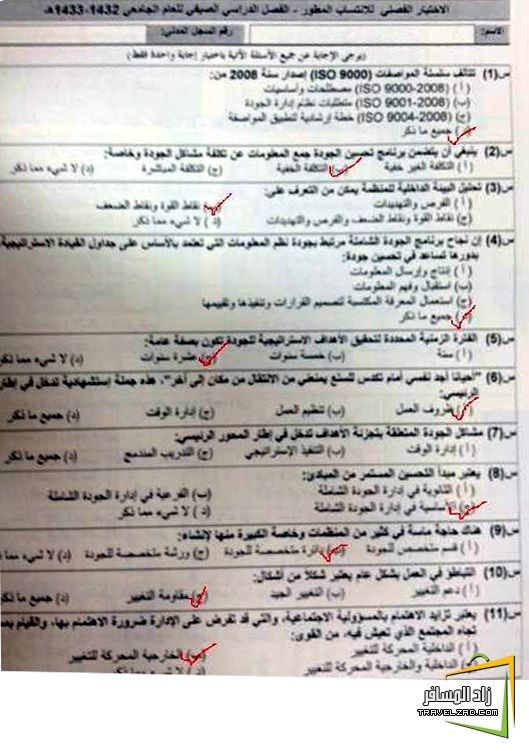 الاختبار الفصلي للانتساب المطور - الفصل الدراسي الصيفي للعام الجامعي 1432-1433هـ
الاسم: رقم السجل المدني:
(يرجى الإجابة عن جميع الأسئلة الآتية باختيار إجابة واحدة فقط)
س(1) تتألف سلسلة المواصفات (ISO 9000) إصدار سنة 2008 من:
(أ) (ISO 9000-2008) مصطلحات وأساسيات
(ب) (ISO 9001-2008) متطلبات نظام إدارة الجودة
(ج) (ISO 9004-2008) خطة إرشادية لتطبيق المواصفة
(د) جميع ما ذكر
س(2) ينبغي أن يتضمن برنامج تحسين الجودة جمع المعلومات عن تكلفة مشاكل الجودة وخاصة:
(أ) التكلفة الغير خفية (ب) التكلفة الخفية (ج) التكلفة المباشرة (د) لا شيء مما ذكر
س(3) تحليل البيئة الداخلية للمنظمة يمكن من التعرف على:
(أ) الفرص والتهديدات (ب) نقاط القوة ونقاط الضعف
(ج) نقاط القوة ونقاط الضعف والفرص والتهديدات (د) لا شيء مما ذكر
س(4) إن نجاح برنامج الجودة الشاملة مرتبط بجودة نظم المعلومات التي تعتمد بالأساس على جداول القيادة الاستراتيجية،
بدورها تساعد في تحسين جودة:
(أ) إنتاج وإرسال المعلومات
(ب) استقبال وفهم المعلومات
(ج) استعمال المعرفة المكتسبة لتصميم القرارات وتنفيذها وتقييمها
(د) جميع ما ذكر
س(5) الفترة الزمنية المحددة لتحقيق الأهداف الاستراتيجية للجودة تكون بصفة عامة:
(أ) سنة (ب) خمسة سنوات (ج) عشرة سنوات (د) لا شيء مما ذكر
س(6) "أحيانا أجد نفسي أمام تكدس للسلع يمنعني من الانتقال من مكان إلى آخر"، هذه جملة إستشهادية تدخل في إطار
الرئيسي:
(أ) ظروف العمل (ب) تنظيم العمل (ج) إدارة الوقت (د) جميع ما ذكر
س(7) مشاكل الجودة المتعلقة بتجزئة الأهداف تدخل في إطار المحور الرئيسي:
(أ) إدارة الوقت (ب) التنفيذ الإستراتيجي (ج) التدريب المندمج (د) جميع ما ذكر
س(8) يعتبر مبدأ التحسين المستمر من المبادئ:
(أ) الثانوية في إدارة الجودة الشاملة (ب) الفرعية في إدارة الجودة الشاملة
(ج) الأساسية في إدارة الجودة الشاملة (د) لا شيء مما ذكر
س(9) هناك حاجة ماسة في كثير من المنظمات وخاصة الكبيرة منها لإنشاء:
(أ) قسم متخصص للجودة (ب) دائرة متخصصة للجودة (ج) ورشة متخصصة للجودة (د) لا شيء مما
س(10) التباطؤ في العمل بشكل عام يعتبر شكلاً من أشكال:
(أ) دعم التغيير (ب) التغيير الجيد (ج) مقاومة التغيير (د) جميع ما ذكر
س(11) يعتبر تزايد الاهتمام بالمسؤولية الاجتماعية، والتي قد تفرض على الإدارة ضرورة الاهتمام بها، والقيام
تجاه المجتمع الذي تعيش فيه، من القوى:
(أ) الداخلية المحركة للتغيير (ب) الخارجية المحركة للتغيير
(ج) الداخلية والخارجية المحركة للتغيير (د) لا شيء مما ذكر
زاد المسافر
TRAVELZAD.COM